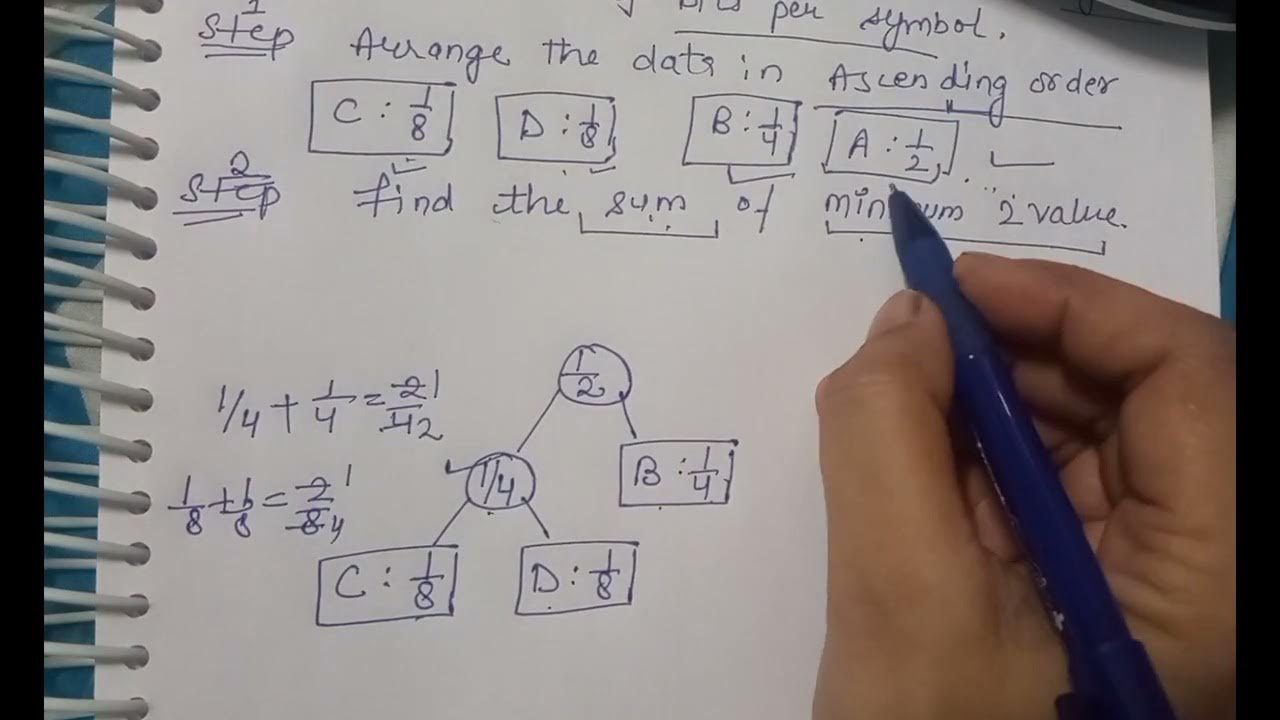 bits per symbol.
Step 1 Arrange the data in Ascending order
C : 1/8 D : 1/8 B : 1/4 A : 1/2
Step 2 find the sum of minimum 2 value.
1/2
1/4 + 1/4 = 2/4 1/2
B : 1/4
1/4
1/8 + 1/8 = 2/8 1/4
C : 1/8 D : 1/8